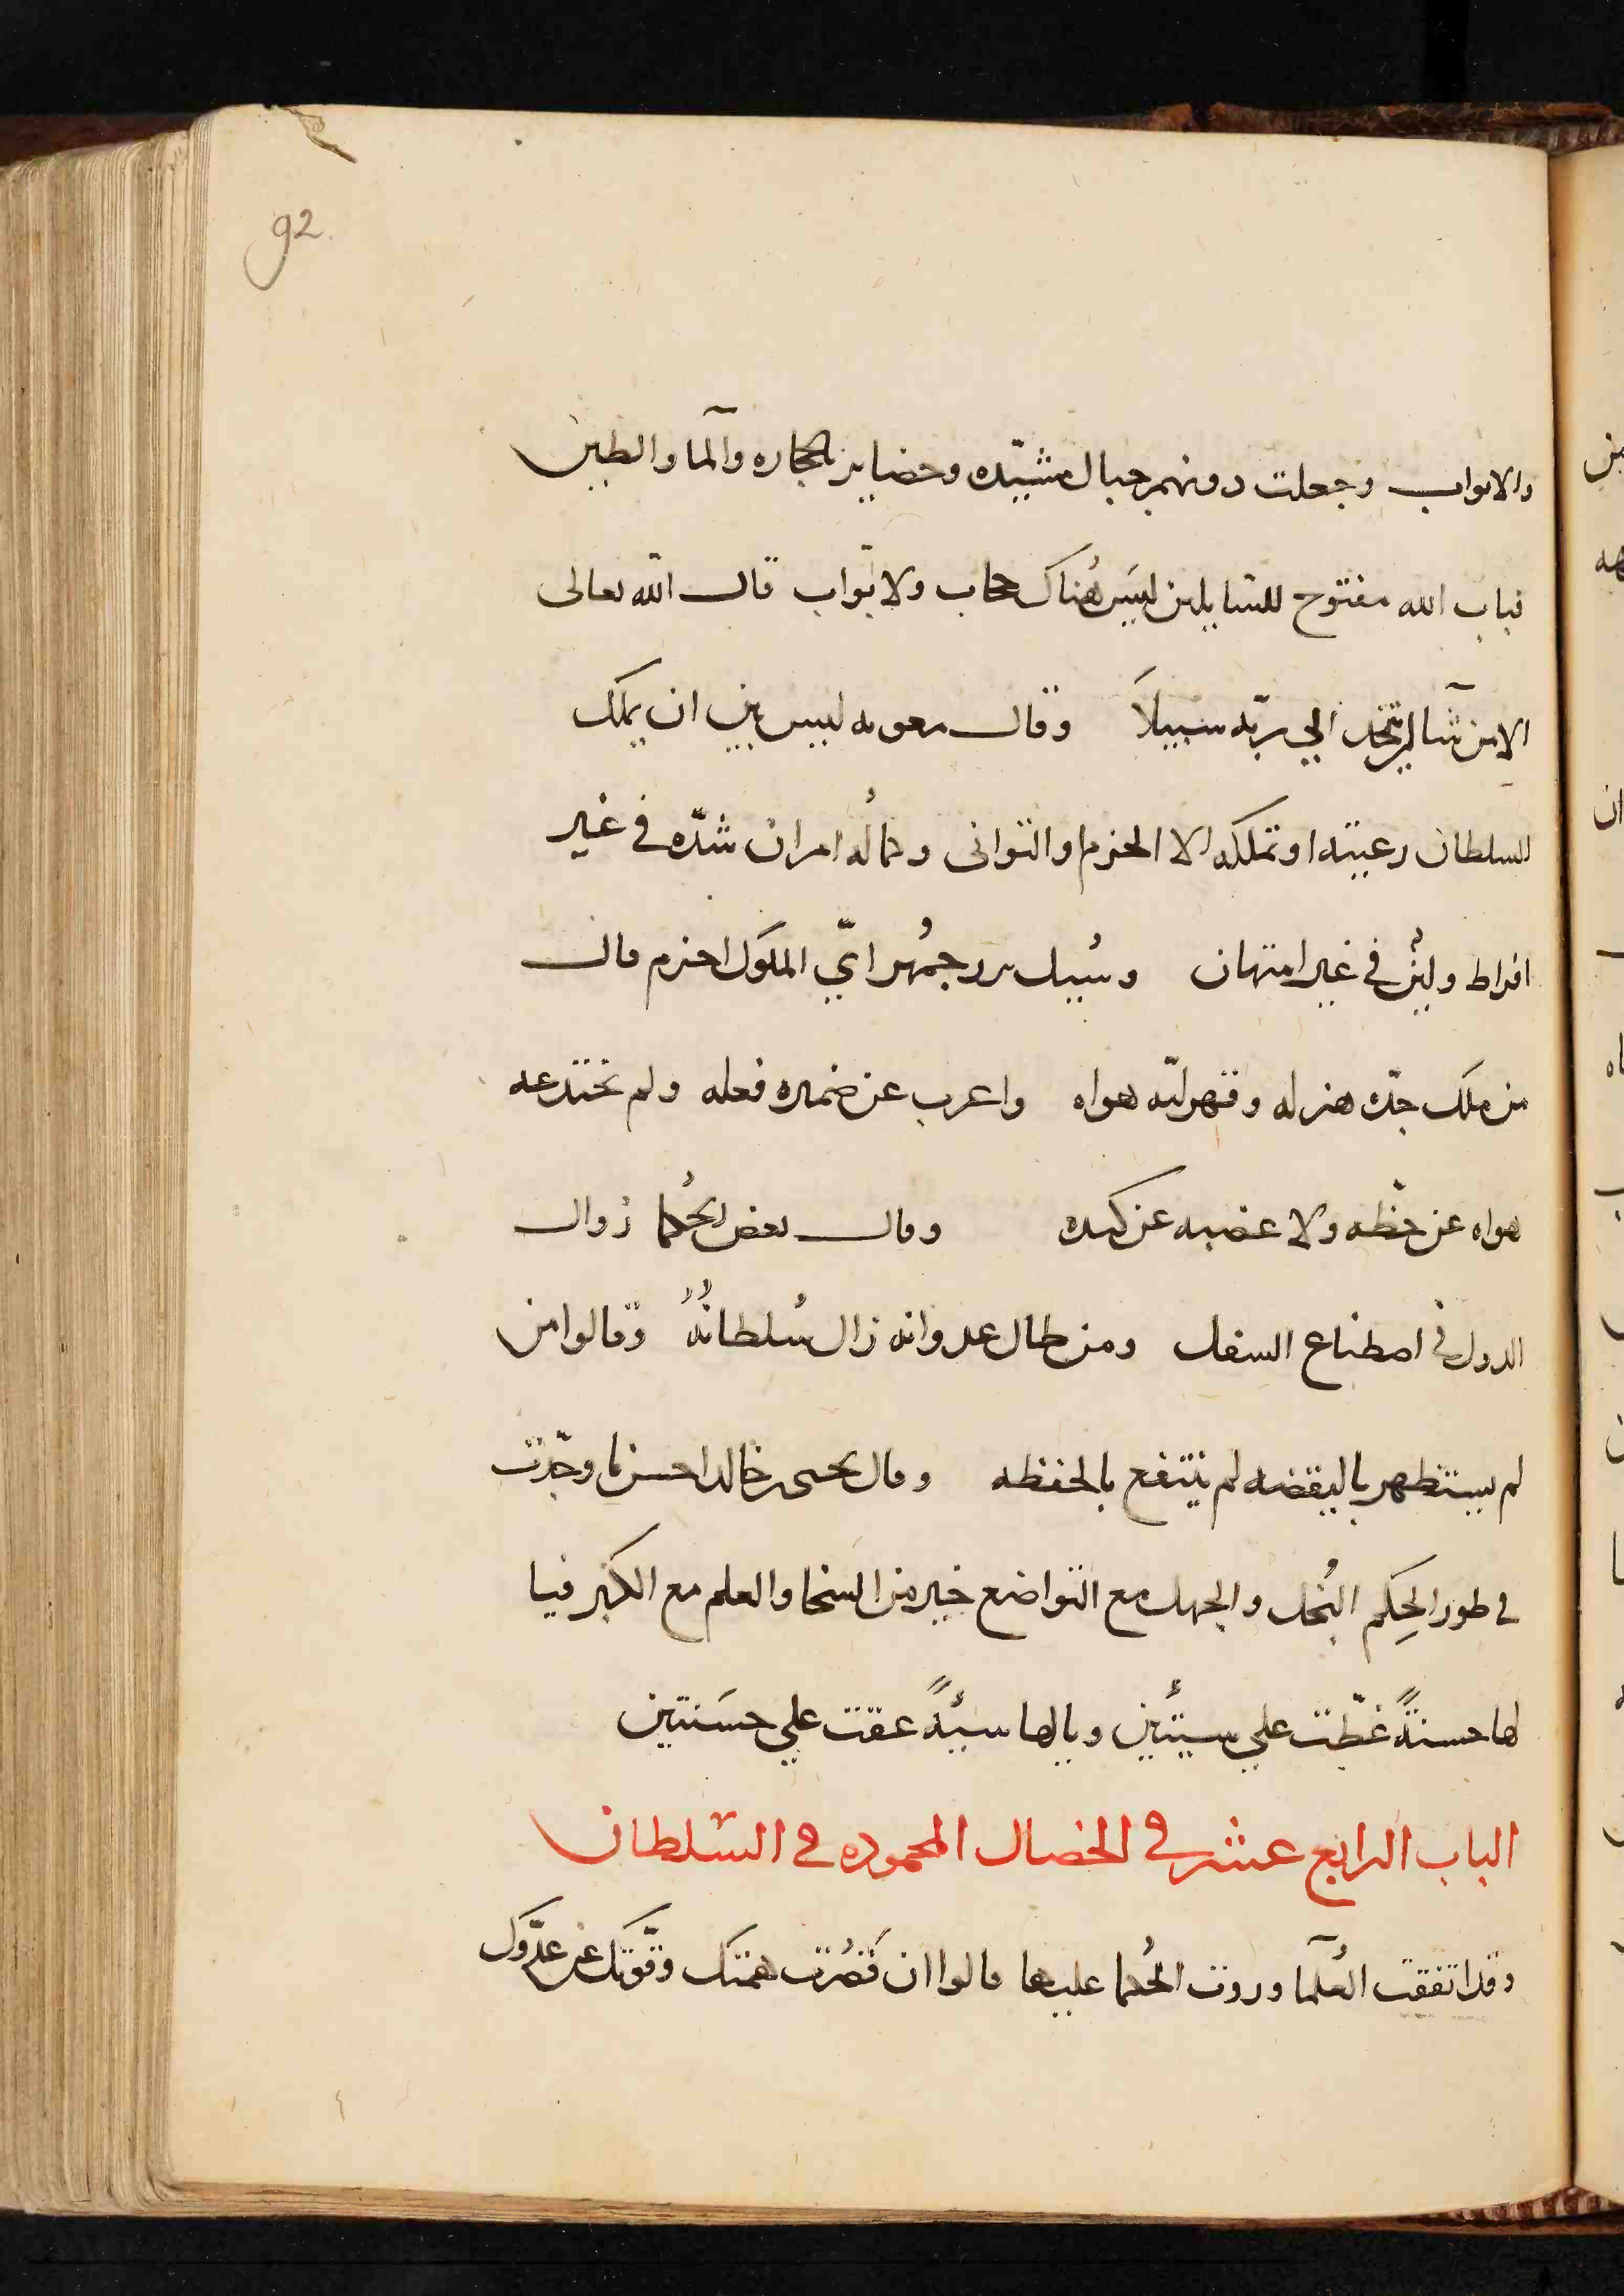 92
والابواب وجعلت دونهم جبال مشيّده وحضاير بالحجاره والمآ والطين
فباب الله مفتوح للسّايلين ليَس هُناك حجاب ولا بوّاب قال الله تعالى
الا من شآ ان يتخذ الي ربّه سبيلاً وقال معويه ليس بين ان يملك
السلطان رعيته او تملكه الا الحزم والتواني وخاله امران شدّه في غير
افراط ولينُ في غير امتهان وسُيل بزرجمُهر ايّ الملوك احزم قال
من ملك جدّه هزله وقهر لبّه هواه واعرب عن ضميره فعله ولم تختدعه
هواه عن حظّه ولا غضبه عن كيده وقال بعض الحُكما زوال
الدول في اصطناع السفل ومن طال عدوانه زال سُلطانُهُ وقالوا من
لم يستظهر باليقضه لم ينتفع بالحفظه وقال يحيى بن خالد احسن ما وجدّت
في طور الحِكم البُخل والجهل مع التواضع خير من السخا والعلم مع الكبر فيا
لها حسنةً غطّت علي سيئتين ويالها سيئةً عفت علي حسَنتين
الباب الرابع عشر في الخصال المحموده في السّلطان
وقد اتفقت العُلمآ وروت الحُكما عليها قالوا ان قَصُرت همتك وقّوتك عن عدّوك